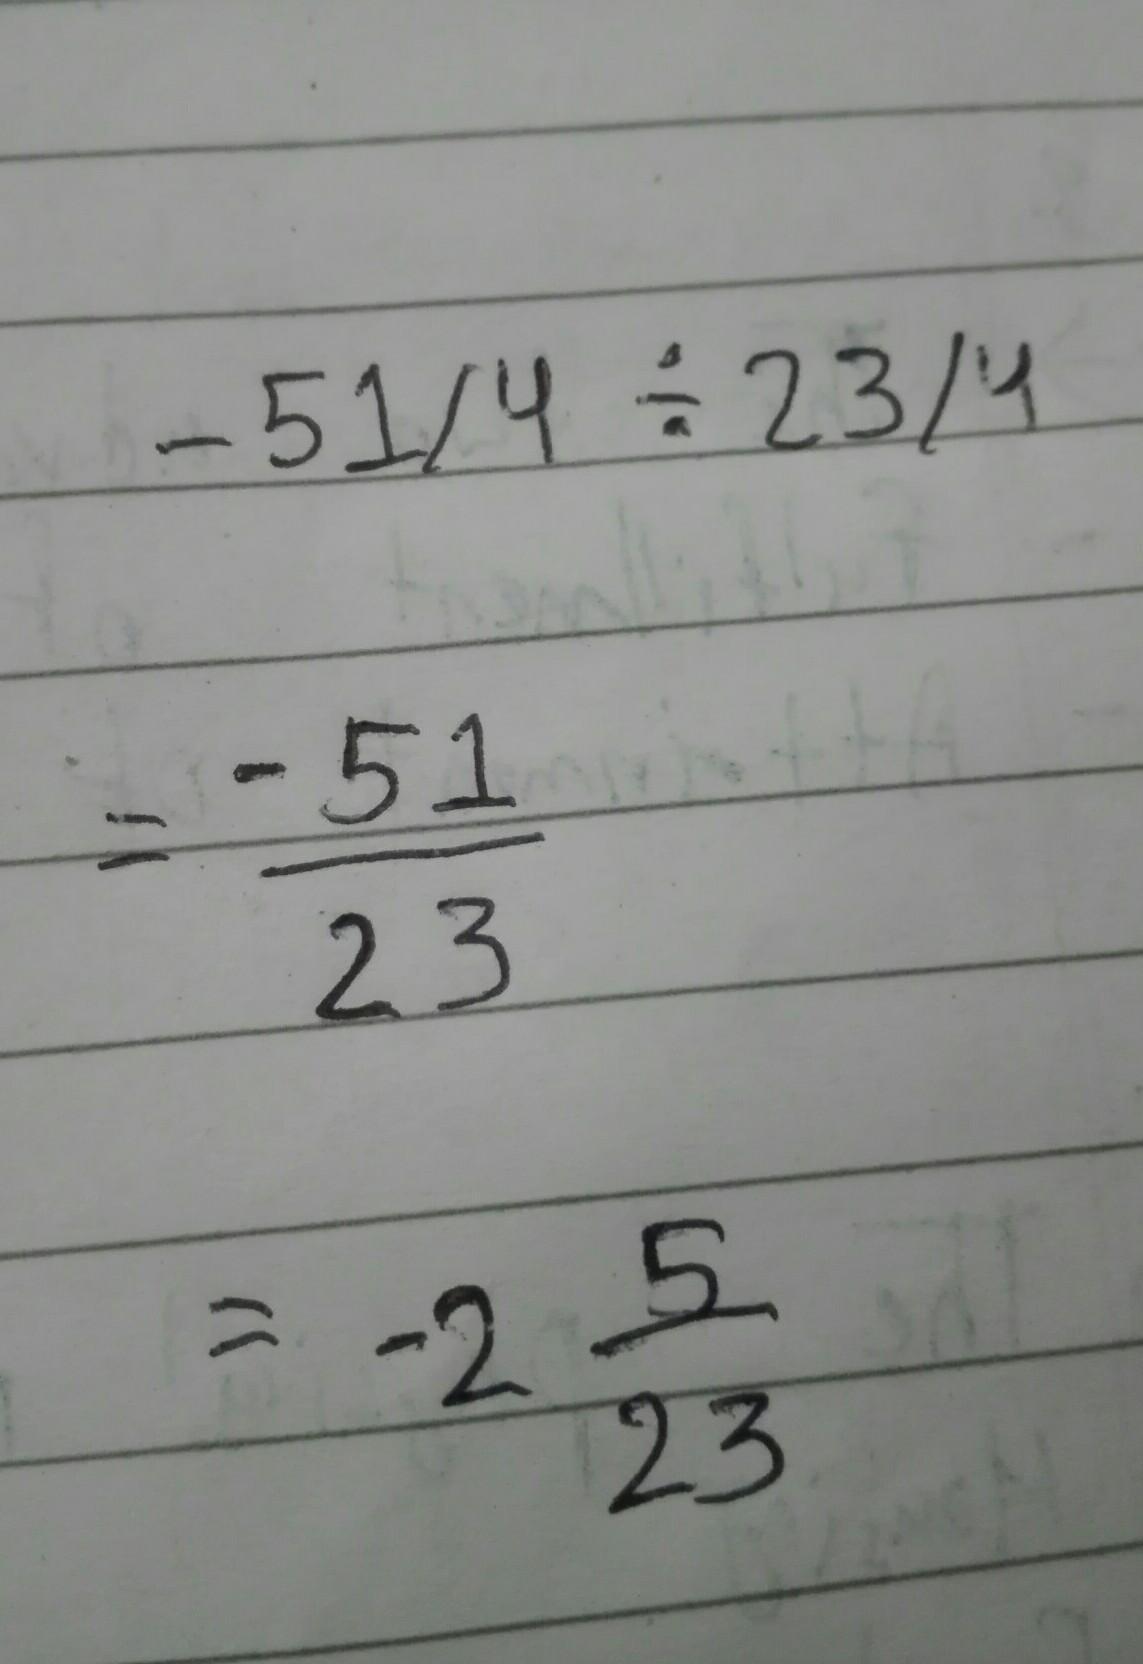 -51/4 ÷ 23/4
= -51/23
= -2 5/23